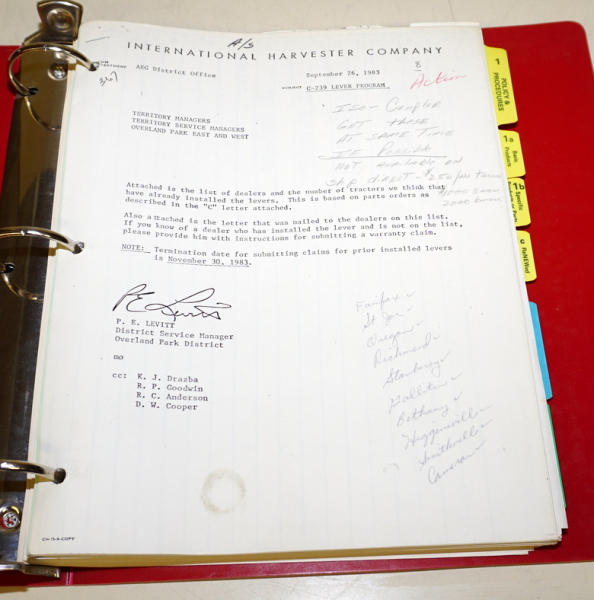 A/S
INTERNATIONAL HARVESTER COMPANY
AEG District Office
September 26, 1983
8
Action
SUBJECT C-239 LEVER PROGRAM
TERRITORY MANAGERS
TERRITORY SERVICE MANAGERS
OVERLAND PARK EAST AND WEST
ISO - Coupler
GET these
AT SAME TIME
IF Possible
NOT AVAILABLE ON
Ship DIRECT - $250
Attached is the list of dealers and the number of tractors we think that
have already installed the levers. This is based on parts orders as
described in the "C" letter attached.
Also attached is the letter that was mailed to the dealers on this list.
If you know of a dealer who has installed the lever and is not on the list,
please provide him with instructions for submitting a warranty claim.
NOTE: Termination date for submitting claims for prior installed levers
is November 30, 1983.
P E Levitt
P. E. LEVITT
District Service Manager
Overland Park District
mo
cc: K. J. Drazba
R. P. Goodwin
R. C. Anderson
D. W. Cooper
Fairfax ✓
St Joe ✓
Oregon ✓
Richmond ✓
Stanberry ✓
Gallatin ✓
Bethany ✓
Higginsville ✓
Smithville ✓
Cameron ✓
1
POLICY &
PROCEDURES
1a
Basic
Products
1b
Specific
1c
ReNEWed